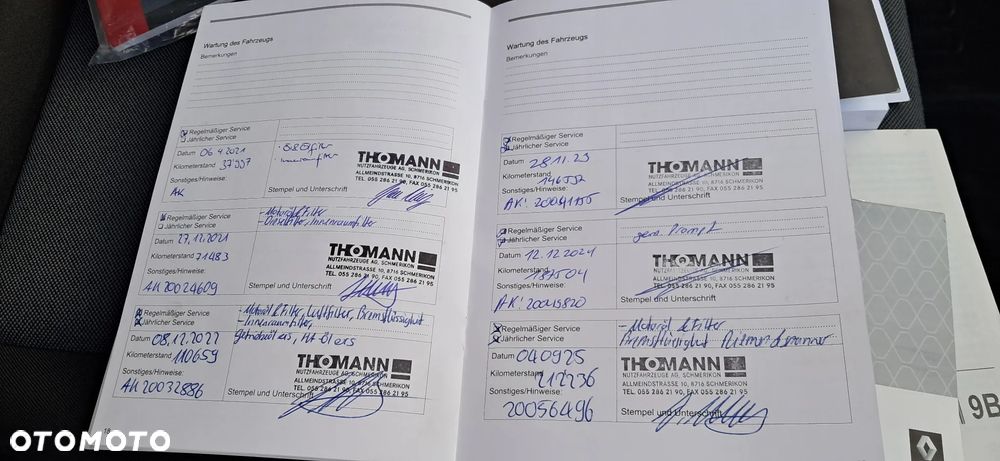 Wartung des Fahrzeugs
Bemerkungen
Regelmäßiger Service
Jährlicher Service
Datum 06.4.2021
Kilometerstand 37'907
Sonstiges/Hinweise:
AK
THOMANN
NUTZFAHRZEUGE AG, SCHMERIKON
ALLMEINDSTRASSE 10, 8716 SCHMERIKON
TEL. 055 286 21 90, FAX 055 286 21 95
Stempel und Unterschrift
Regelmäßiger Service
Jährlicher Service
- Motoröl & Filter
- Dieselfilter, Innenraumfilter
Datum 27.12.2021
Kilometerstand 71483
Sonstiges/Hinweise:
AK 20024609
THOMANN
NUTZFAHRZEUGE AG, SCHMERIKON
ALLMEINDSTRASSE 10, 8716 SCHMERIKON
TEL. 055 286 21 90, FAX 055 286 21 95
Stempel und Unterschrift
Regelmäßiger Service
Jährlicher Service
- Motoröl & Filter, Luftfilter, Bremsflüssigkeit
- Innenraumfilter,
Datum 08.12.2022
Kilometerstand 110659
Sonstiges/Hinweise:
AK 20032886
THOMANN
NUTZFAHRZEUGE AG, SCHMERIKON
ALLMEINDSTRASSE 10, 8716 SCHMERIKON
TEL. 055 286 21 90, FAX 055 286 21 95
Stempel und Unterschrift
18
Wartung des Fahrzeugs
Bemerkungen
Regelmäßiger Service
Jährlicher Service
Datum 28.11.23
Kilometerstand
Sonstiges/Hinweise:
AK: 20041155
THOMANN
NUTZFAHRZEUGE AG, SCHMERIKON
ALLMEINDSTRASSE 10, 8716 SCHMERIKON
TEL. 055 286 21 90, FAX 055 286 21 95
Stempel und Unterschrift
Regelmäßiger Service
Jährlicher Service
gem. Prompt
Datum 12.12.2024
Kilometerstand 187504
Sonstiges/Hinweise:
AK: 20045820
THOMANN
NUTZFAHRZEUGE AG, SCHMERIKON
ALLMEINDSTRASSE 10, 8716 SCHMERIKON
TEL. 055 286 21 90, FAX 055 286 21 95
Stempel und Unterschrift
Regelmäßiger Service
Jährlicher Service
- Motoröl & Filter
Bremsflüssigkeit Riemen & spanner
Datum 040925
Kilometerstand 217236
Sonstiges/Hinweise:
20056496
THOMANN
NUTZFAHRZEUGE AG, SCHMERIKON
ALLMEINDSTRASSE 10, 8716 SCHMERIKON
TEL. 055 286 21 90, FAX 055 286 21 95
Stempel und Unterschrift
9B
OTOMOTO